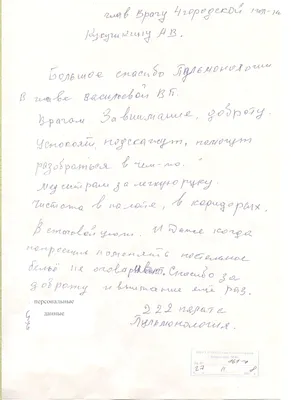 глав Врачу 4 городской
Кукушкину А.В.
Большое спасибо Пульмонологии
В лице Васильевой В.П.
Врачам За внимание, доброту.
Успокоят, подскажут, помогут
разобраться в чем-то.
Мед сёстрам за легкую руку.
Чистота в палате, в коридорах.
В столовой уютно. И Даже когда
попросишь поменять постельное
бельё не оговаривают. Спасибо за
доброту и внимание ещё раз.
персональные
данные
222 палата
Пульмонология.